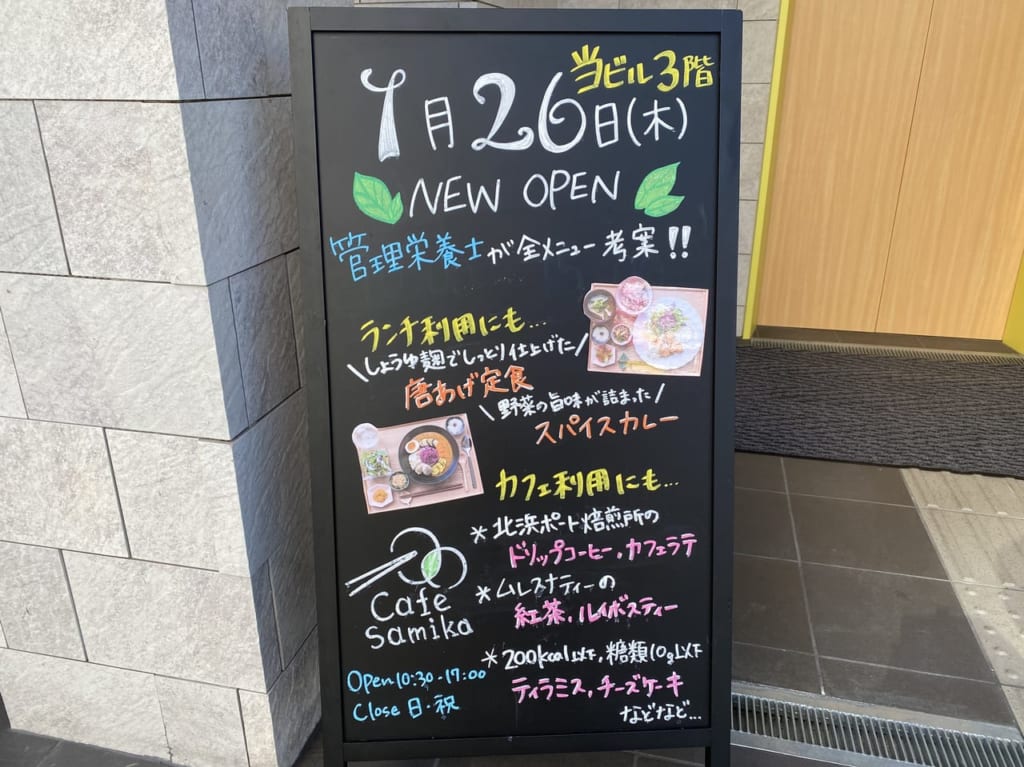 当ビル3階
1月26日(木)
NEW OPEN
管理栄養士が全メニュー考案!!
ランチ利用にも…
\しょうゆ麹でしっとり仕上げた/
唐あげ定食
\野菜の旨味が詰まった/
スパイスカレー
カフェ利用にも…
*北浜ポート焙煎所の
ドリップコーヒー,カフェラテ
*ムレスナティーの
紅茶,ルイボスティー
*200kcal以下,糖類10g以下
ティラミス,チーズケーキ
などなど…
Cafe
Samika
Open 10:30-17:00
Close 日・祝